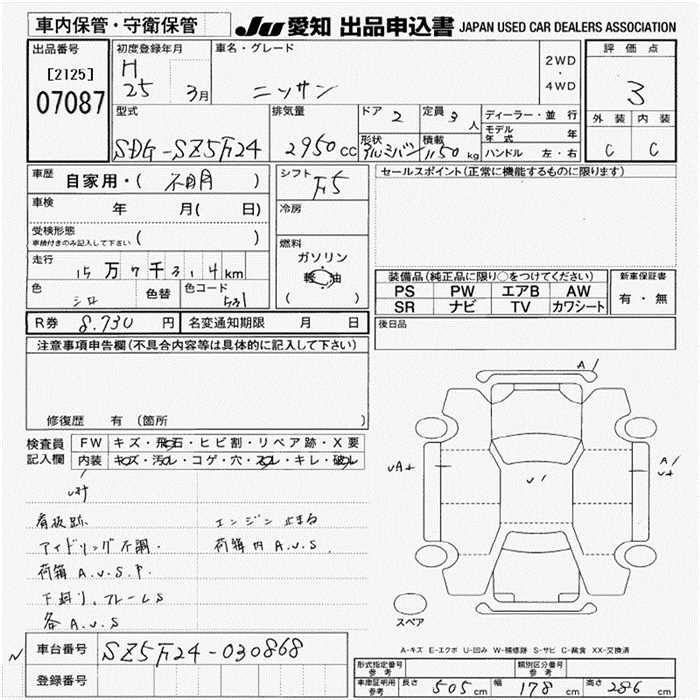 車内保管・守衛保管
JU 愛知 出品申込書 JAPAN USED CAR DEALERS ASSOCIATION
出品番号
[2125]
07087
初度登録年月
H
25 3月
車名・グレード
ニッサン
2WD
・
4WD
評価点
3
外装 内装
C C
型式
SDG-SZ5F24
排気量
2950cc
ドア 2
定員 3人
形状 アルミバン
積載 1150kg
ディーラー・並行
モデル年式 年
ハンドル 左・右
車歴
自家用・( 不明 )
車検
年 月( 日)
受検形態
車検付きのみ記入して下さい ( )
走行
15万7千314km
色
シロ
色替
色コード
531
シフト F5
冷房
燃料
ガソリン
軽油
( )
セールスポイント(正常に機能するものに限ります)
装備品(純正品に限り○をつけてください)
PS PW エアB AW
SR ナビ TV カワシート
新車保証書
有・無
後日品
R券 8.730 円
名変通知期限 月 日
注意事項申告欄(不具合内容等は具体的に記入して下さい)
修復歴 有 (箇所 )
検査員
記入欄
FW キズ・飛石・ヒビ割・リペア跡・X要
内装 キズ・汚れ・コゲ・穴・スレ・キレ・破れ
看板跡
エンジン止まる
アイドリング不調.
荷箱内 A.U.S
荷箱 A.U.S.P.
下廻り,フレームS
各 A.U.S
A/
UA+
U/
A/
U+
スペア
A-キズ E-エクボ U-凹み W-補修跡 S-サビ C-腐食 XX-交換済
N
車台番号 SZ5F24-030868
登録番号
形式指定番号
参考
類別区分番号
参考
車庫証明用
参考
長さ 505cm
幅 178cm
高さ 286cm